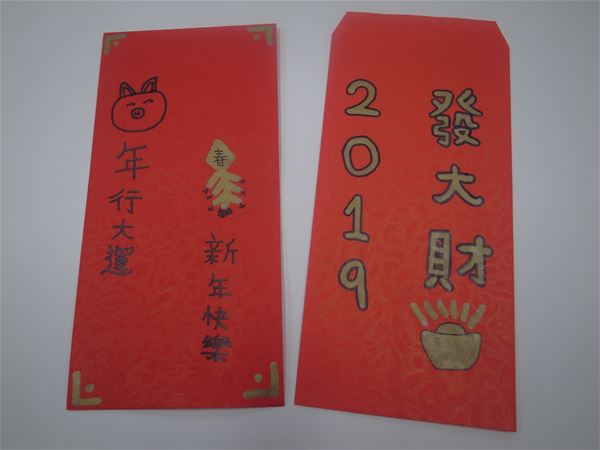 年行大運
春
新年快樂
2019
發大財